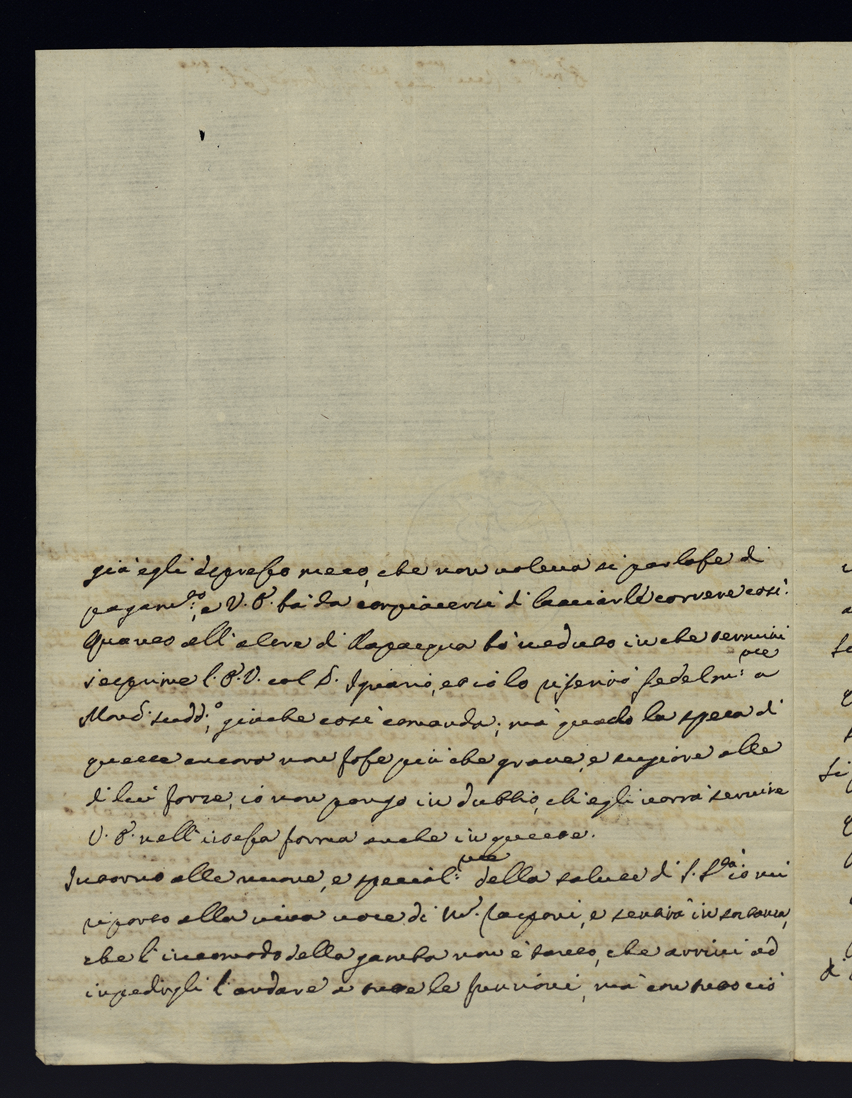 già egli espresso meco, che non voleva si parlasse di
pagam.to; e V. E. hà da compiacersi di lasciarlo correre così.
Quanto all'altre di hò veduto in che termini
s'esprime l'E. V. col S. Ignazio, e ciò lo riferirò fedelm:te a
Mons.r sudd:o, giache così comanda; mà quando la spesa di
queste ancora non fosse più che grave, e superiore alle
di lui forze, io non pongo in dubbio, ch'egli vorrà servire
V. E. nell'istessa forma anche in queste.
Intorno alle nuove, e special:te della salute di S. S.tà io mi
riporto alla viva voce di M.r, e sentirà in sostanza,
che l'incomodo della gamba non è tanto, che arrivi ad
impedirgli l'andare a tutte le funzioni, mà con tutto ciò